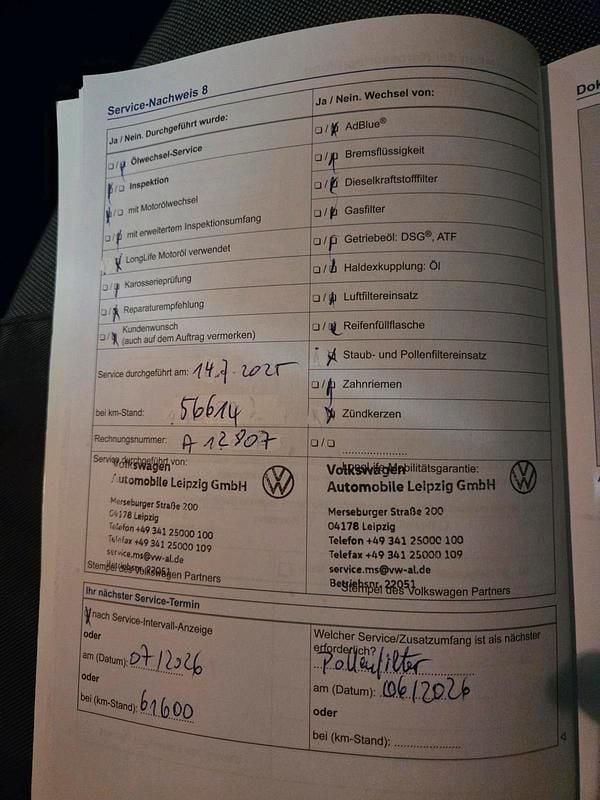 Service-Nachweis 8
Ja / Nein. Durchgeführt wurde:
Ölwechsel-Service
Inspektion
mit Motorölwechsel
mit erweitertem Inspektionsumfang
LongLife Motoröl verwendet
Karosserieprüfung
Reparaturempfehlung
Kundenwunsch
(auch auf dem Auftrag vermerken)
Service durchgeführt am: 14.7.2025
bei km-Stand: 56614
Rechnungsnummer: A 12807
Service durchgeführt von:
Volkswagen
Automobile Leipzig GmbH
Merseburger Straße 200
04178 Leipzig
Telefon +49 341 25000 100
Telefax +49 341 25000 109
service.ms@vw-al.de
Betriebsnr. 22051
Stempel des Volkswagen Partners
Ja / Nein. Wechsel von:
AdBlue®
Bremsflüssigkeit
Dieselkraftstofffilter
Gasfilter
Getriebeöl: DSG®, ATF
Haldexkupplung: Öl
Luftfiltereinsatz
Reifenfüllflasche
Staub- und Pollenfiltereinsatz
Zahnriemen
Zündkerzen
LongLife Mobilitätsgarantie:
Volkswagen
Automobile Leipzig GmbH
Merseburger Straße 200
04178 Leipzig
Telefon +49 341 25000 100
Telefax +49 341 25000 109
service.ms@vw-al.de
Betriebsnr. 22051
Stempel des Volkswagen Partners
Ihr nächster Service-Termin
nach Service-Intervall-Anzeige
oder
am (Datum): 07/2026
oder
bei (km-Stand): 61600
Welcher Service/Zusatzumfang ist als nächster
erforderlich?
Pollenfilter
am (Datum): 06/2026
oder
bei (km-Stand):
4